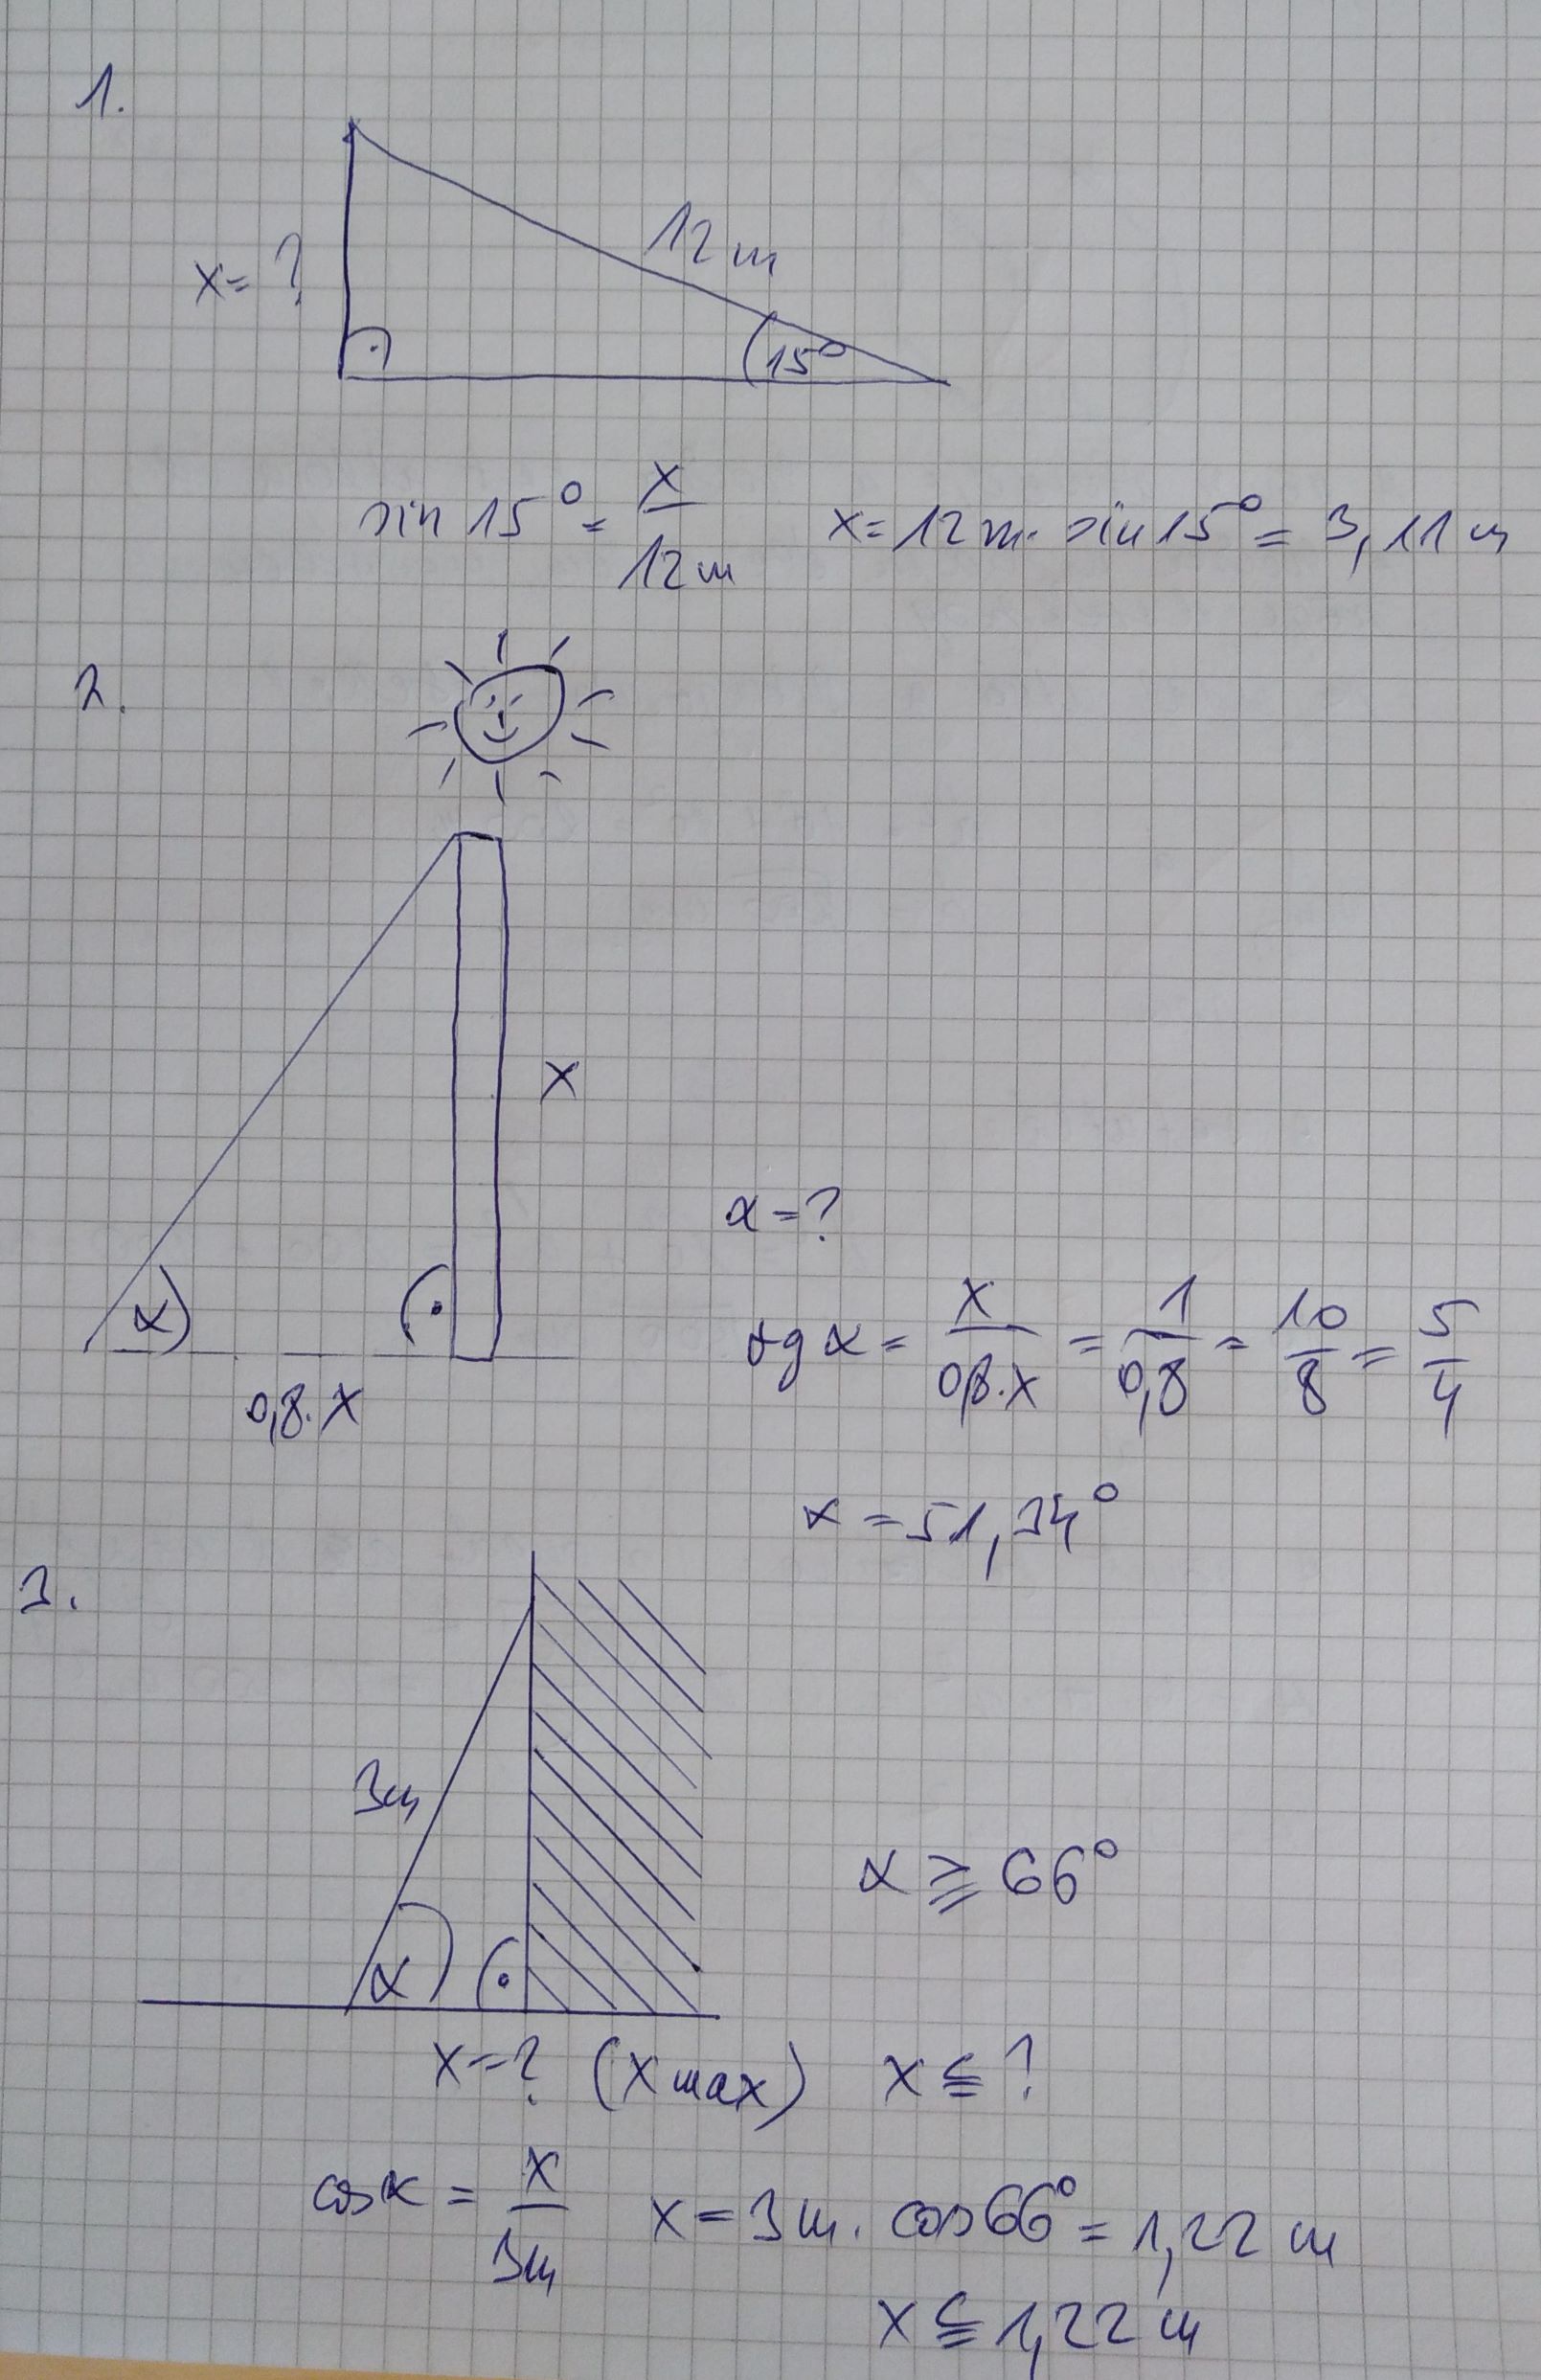 1.
12 m
x = ?
15°
sin 15° = x/12m    x = 12 m · sin 15° = 3,11 m
2.
x
α = ?
α
tg α = x/0,8·x = 1/0,8 = 10/8 = 5/4
0,8·x
α = 51,34°
3.
3m
α ≧ 66°
α
x = ? (x max)    x ≦ ?
cos α = x/3m    x = 3 m · cos 66° = 1,22 m
x ≦ 1,22 m